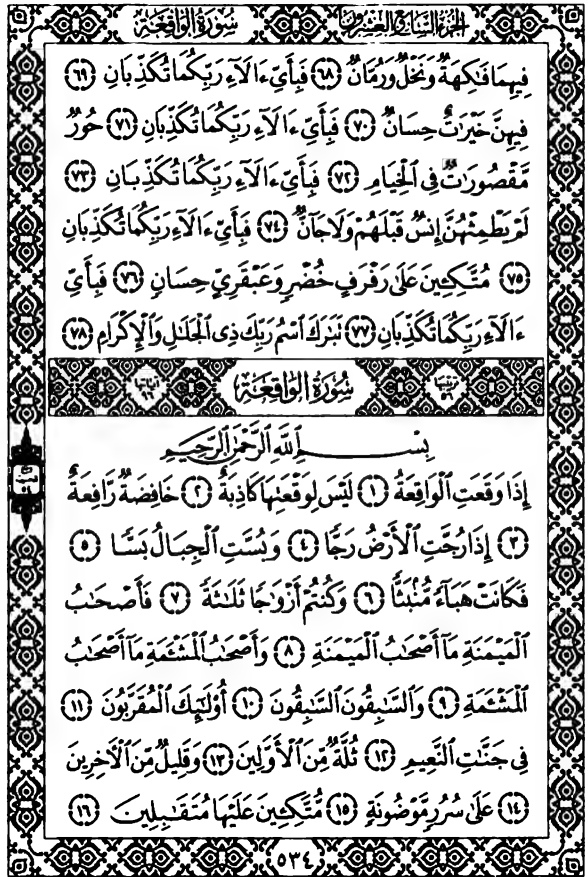 الجزء السابع والعشرون سورة الواقعة
فِيهِمَا فَٰكِهَةٌ وَنَخْلٌ وَرُمَّانٌ ٦٨ فَبِأَىِّ ءَالَآءِ رَبِّكُمَا تُكَذِّبَانِ ٦٩
فِيهِنَّ خَيْرَٰتٌ حِسَانٌ ٧٠ فَبِأَىِّ ءَالَآءِ رَبِّكُمَا تُكَذِّبَانِ ٧١ حُورٌ
مَّقْصُورَٰتٌ فِى ٱلْخِيَامِ ٧٢ فَبِأَىِّ ءَالَآءِ رَبِّكُمَا تُكَذِّبَانِ ٧٣
لَمْ يَطْمِثْهُنَّ إِنسٌ قَبْلَهُمْ وَلَا جَآنٌّ ٧٤ فَبِأَىِّ ءَالَآءِ رَبِّكُمَا تُكَذِّبَانِ
٧٥ مُتَّكِـِٔينَ عَلَىٰ رَفْرَفٍ خُضْرٍ وَعَبْقَرِىٍّ حِسَانٍ ٧٦ فَبِأَىِّ
ءَالَآءِ رَبِّكُمَا تُكَذِّبَانِ ٧٧ تَبَٰرَكَ ٱسْمُ رَبِّكَ ذِى ٱلْجَلَٰلِ وَٱلْإِكْرَامِ ٧٨
ترتيبها ٥٦ سُورَةُ الوَاقِعَة آياتها ٩٦
بِسْمِ ٱللَّهِ ٱلرَّحْمَٰنِ ٱلرَّحِيمِ
إِذَا وَقَعَتِ ٱلْوَاقِعَةُ ١ لَيْسَ لِوَقْعَتِهَا كَاذِبَةٌ ٢ خَافِضَةٌ رَّافِعَةٌ
٣ إِذَا رُجَّتِ ٱلْأَرْضُ رَجًّا ٤ وَبُسَّتِ ٱلْجِبَالُ بَسًّا ٥
فَكَانَتْ هَبَآءً مُّنۢبَثًّا ٦ وَكُنتُمْ أَزْوَٰجًا ثَلَٰثَةً ٧ فَأَصْحَٰبُ
ٱلْمَيْمَنَةِ مَآ أَصْحَٰبُ ٱلْمَيْمَنَةِ ٨ وَأَصْحَٰبُ ٱلْمَشْـَٔمَةِ مَآ أَصْحَٰبُ
ٱلْمَشْـَٔمَةِ ٩ وَٱلسَّٰبِقُونَ ٱلسَّٰبِقُونَ ١٠ أُو۟لَٰٓئِكَ ٱلْمُقَرَّبُونَ ١١
فِى جَنَّٰتِ ٱلنَّعِيمِ ١٢ ثُلَّةٌ مِّنَ ٱلْأَوَّلِينَ ١٣ وَقَلِيلٌ مِّنَ ٱلْـَٔاخِرِينَ
١٤ عَلَىٰ سُرُرٍ مَّوْضُونَةٍ ١٥ مُّتَّكِـِٔينَ عَلَيْهَا مُتَقَٰبِلِينَ ١٦
٥٣٤